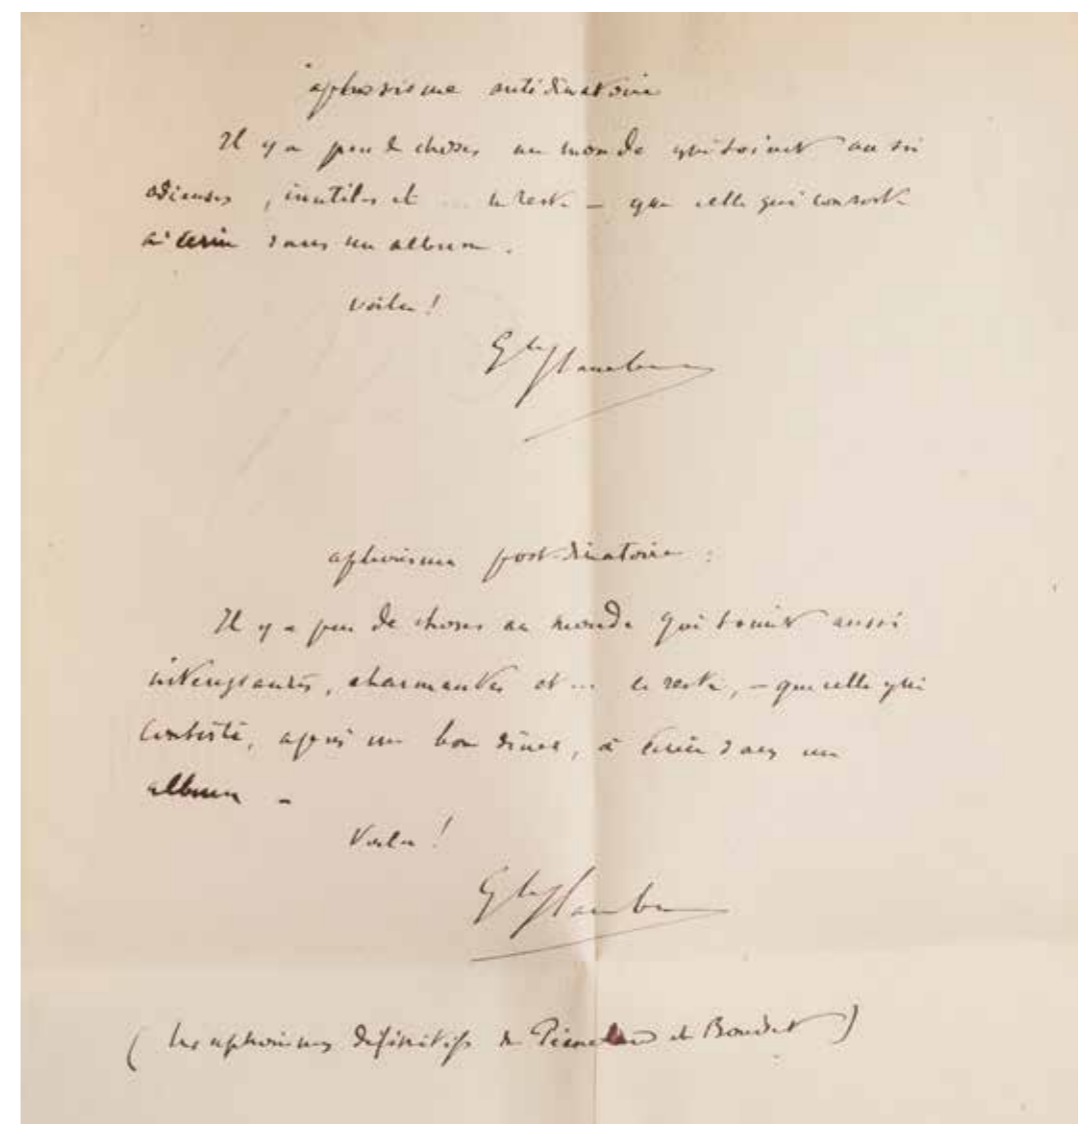 aphorisme antédinatoire
Il y a peu de choses au monde qui soient aussi
odieuses, inutiles et ... le reste – que celle qui consiste
à écrire dans un album.
voila !
Gve Flaubert
aphorisme post-dinatoire :
Il y a peu de choses au monde qui soient aussi
intelligentes, charmantes et ... le reste, – que celle qui
consiste, après un bon dîner, à écrire dans un
album –
Voila !
Gve Flaubert
( les aphorismes définitifs de et )